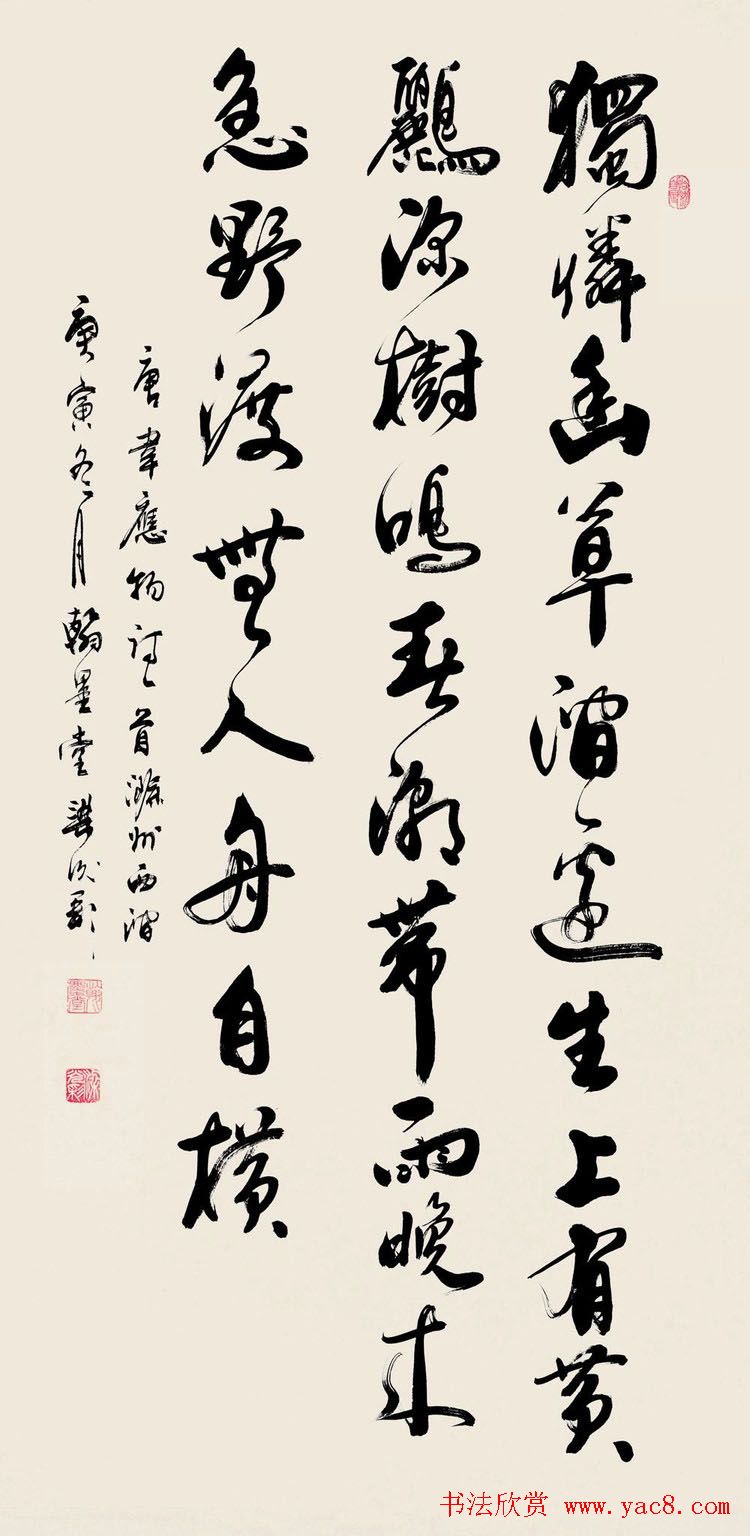 獨憐幽草澗邊生上有黃
鸝深樹鳴春潮帶雨晚來
急野渡無人舟自橫
唐韋應物詩一首滁州西澗
庚寅冬月翰墨堂梁
书法欣赏 www.yac8.com